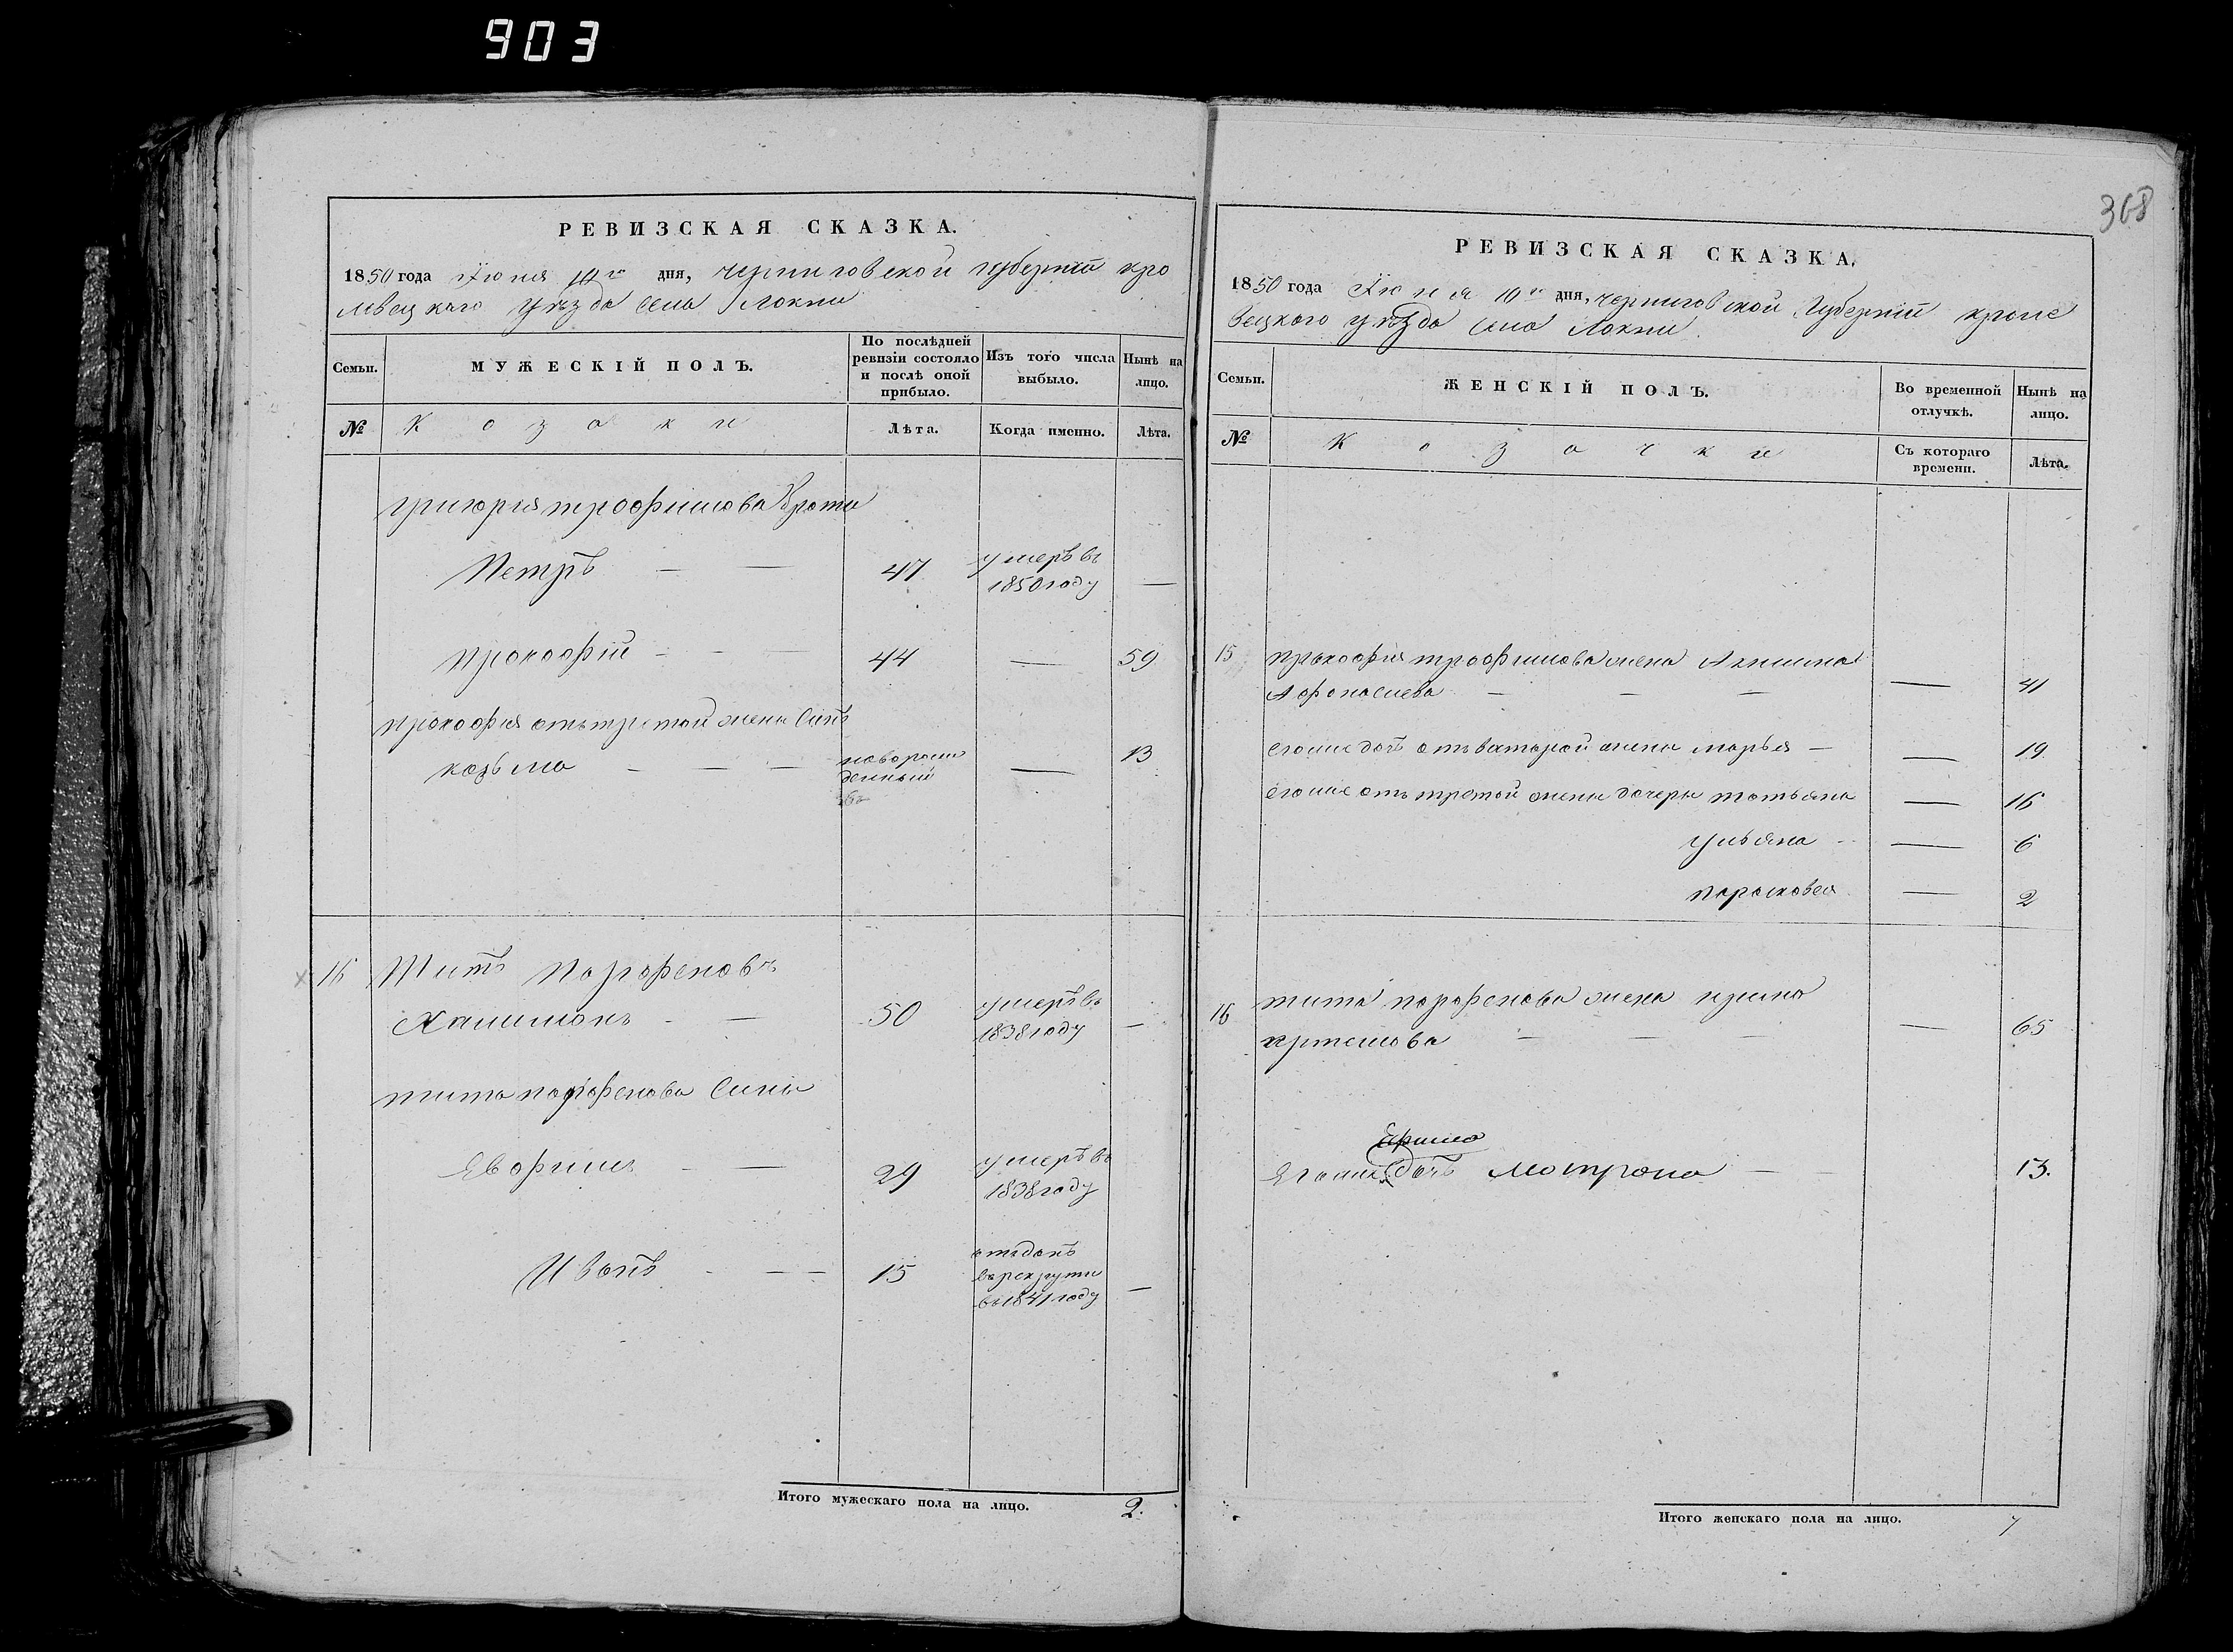 903
368
РЕВИЗСКАЯ СКАЗКА.
1850 года Июня 10го дня, черниговской губернии кро
левецкаго уѣзда села Локни
Семьи.
МУЖЕСКІЙ ПОЛЪ.
По послѣдней ревизіи состояло и послѣ оной прибыло.
Изъ того числа выбыло.
Нынѣ на лицо.
№
Козаки
Лѣта.
Когда именно.
Лѣта.
григория трофимова браты
Петръ — — 47 умеръ въ 1850 году —
прокофій — — 44 — 59
прокофия отъ третой жены синъ
козьма — — — новорожденный — 13
16 Титъ Парфеновъ
Халимонъ — — 50 умеръ въ 1838 году —
тита парфенова сины
Евфимъ — — 29 умеръ въ 1838 году
Иванъ — — — 15 отъданъ въ рекруты въ 1841 году —
Итого мужескаго пола на лицо. 2.
РЕВИЗСКАЯ СКАЗКА.
1850 года Июня 10го дня, черниговской Губерніи кроле
вецкого уѣзда села Локни.
Семьи.
ЖЕНСКІЙ ПОЛЪ.
Во временной отлучкѣ.
Нынѣ на лицо.
№
Козачки
Съ котораго времени.
Лѣта.
15 прокофия трофимова жена Акилина
Афонасиева — — — — 41
егоже дочъ отъ второй жены марья — — 19
егоже отъ третой жены дочери татьяна — 16
ульяна — — 6
парасковея — 2
16 тита парфенова жена ирина
артемова — — — — 65
Егоже дочъ матрона — — 13.
Итого женскаго пола на лицо. 7